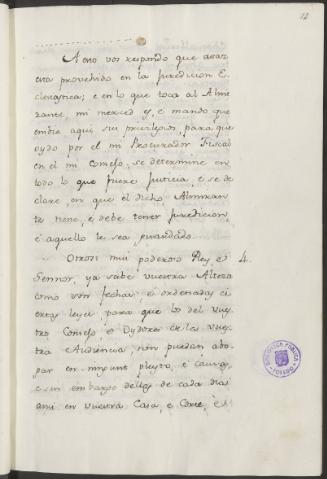 12
A esto vos respondo que asaz
esta provehido en la Juredicion E
clesiastica; e en lo que toca al Almi
rante, mi merced es, e mando que
embie aqui sus privilegios, para que
oydo por el mi Procurador Fiscal
en el mi Consejo, se determine en
todo lo que fuere Justicia, e se de
clare, en que el dicho Almiran
te tiene, e debe tener juredicion,
e aquello le sea guardado.
Otrosi mui poderoso Rey, e
Sennor, ya sabe vuestra Alteza
como son fechas, e ordenadas ci
ertas leyes para que los del vues
tro Consejo e Oydores de la vues
tra Audiencia, non puedan abo
gar en ningunt pleyto, e causas,
e sin embargo dellas de cada dia
ansi en vuestra Casa, e Corte, e
4.
BIBLIOTECA PUBLICA
TOLEDO